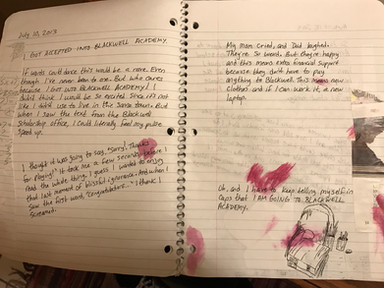 July 10, 2013
I GOT ACCEPTED INTO BLACKWELL ACADEMY.
If words could dance this would be a rave. Even
though I've never been to one. But who cares
because I GOT INTO BLACKWELL ACADEMY! I
didn't think I would be so excited since it's not
like I didn't use to live in this same town. But
when I saw the text from the Blackwell
Scholarship office, I could literally feel my pulse
speed up.
I thought it was going to say "Sorry! Thanks
for playing!" It took me a few seconds before I
read the whole thing. I guess I wanted to enjoy
that last moment of blissful ignorance. And when I
saw the first word, "Congratulations..." I think I
screamed.
My mom cried, and Dad laughed.
They're so weird. But they're happy
and this means extra financial support
because they don't have to pay
anything to Blackwell. This means new
clothes and if I can work it, a new
laptop.
Uh, and I have to keep telling myself in
caps that I AM GOING TO BLACKWELL
ACADEMY.